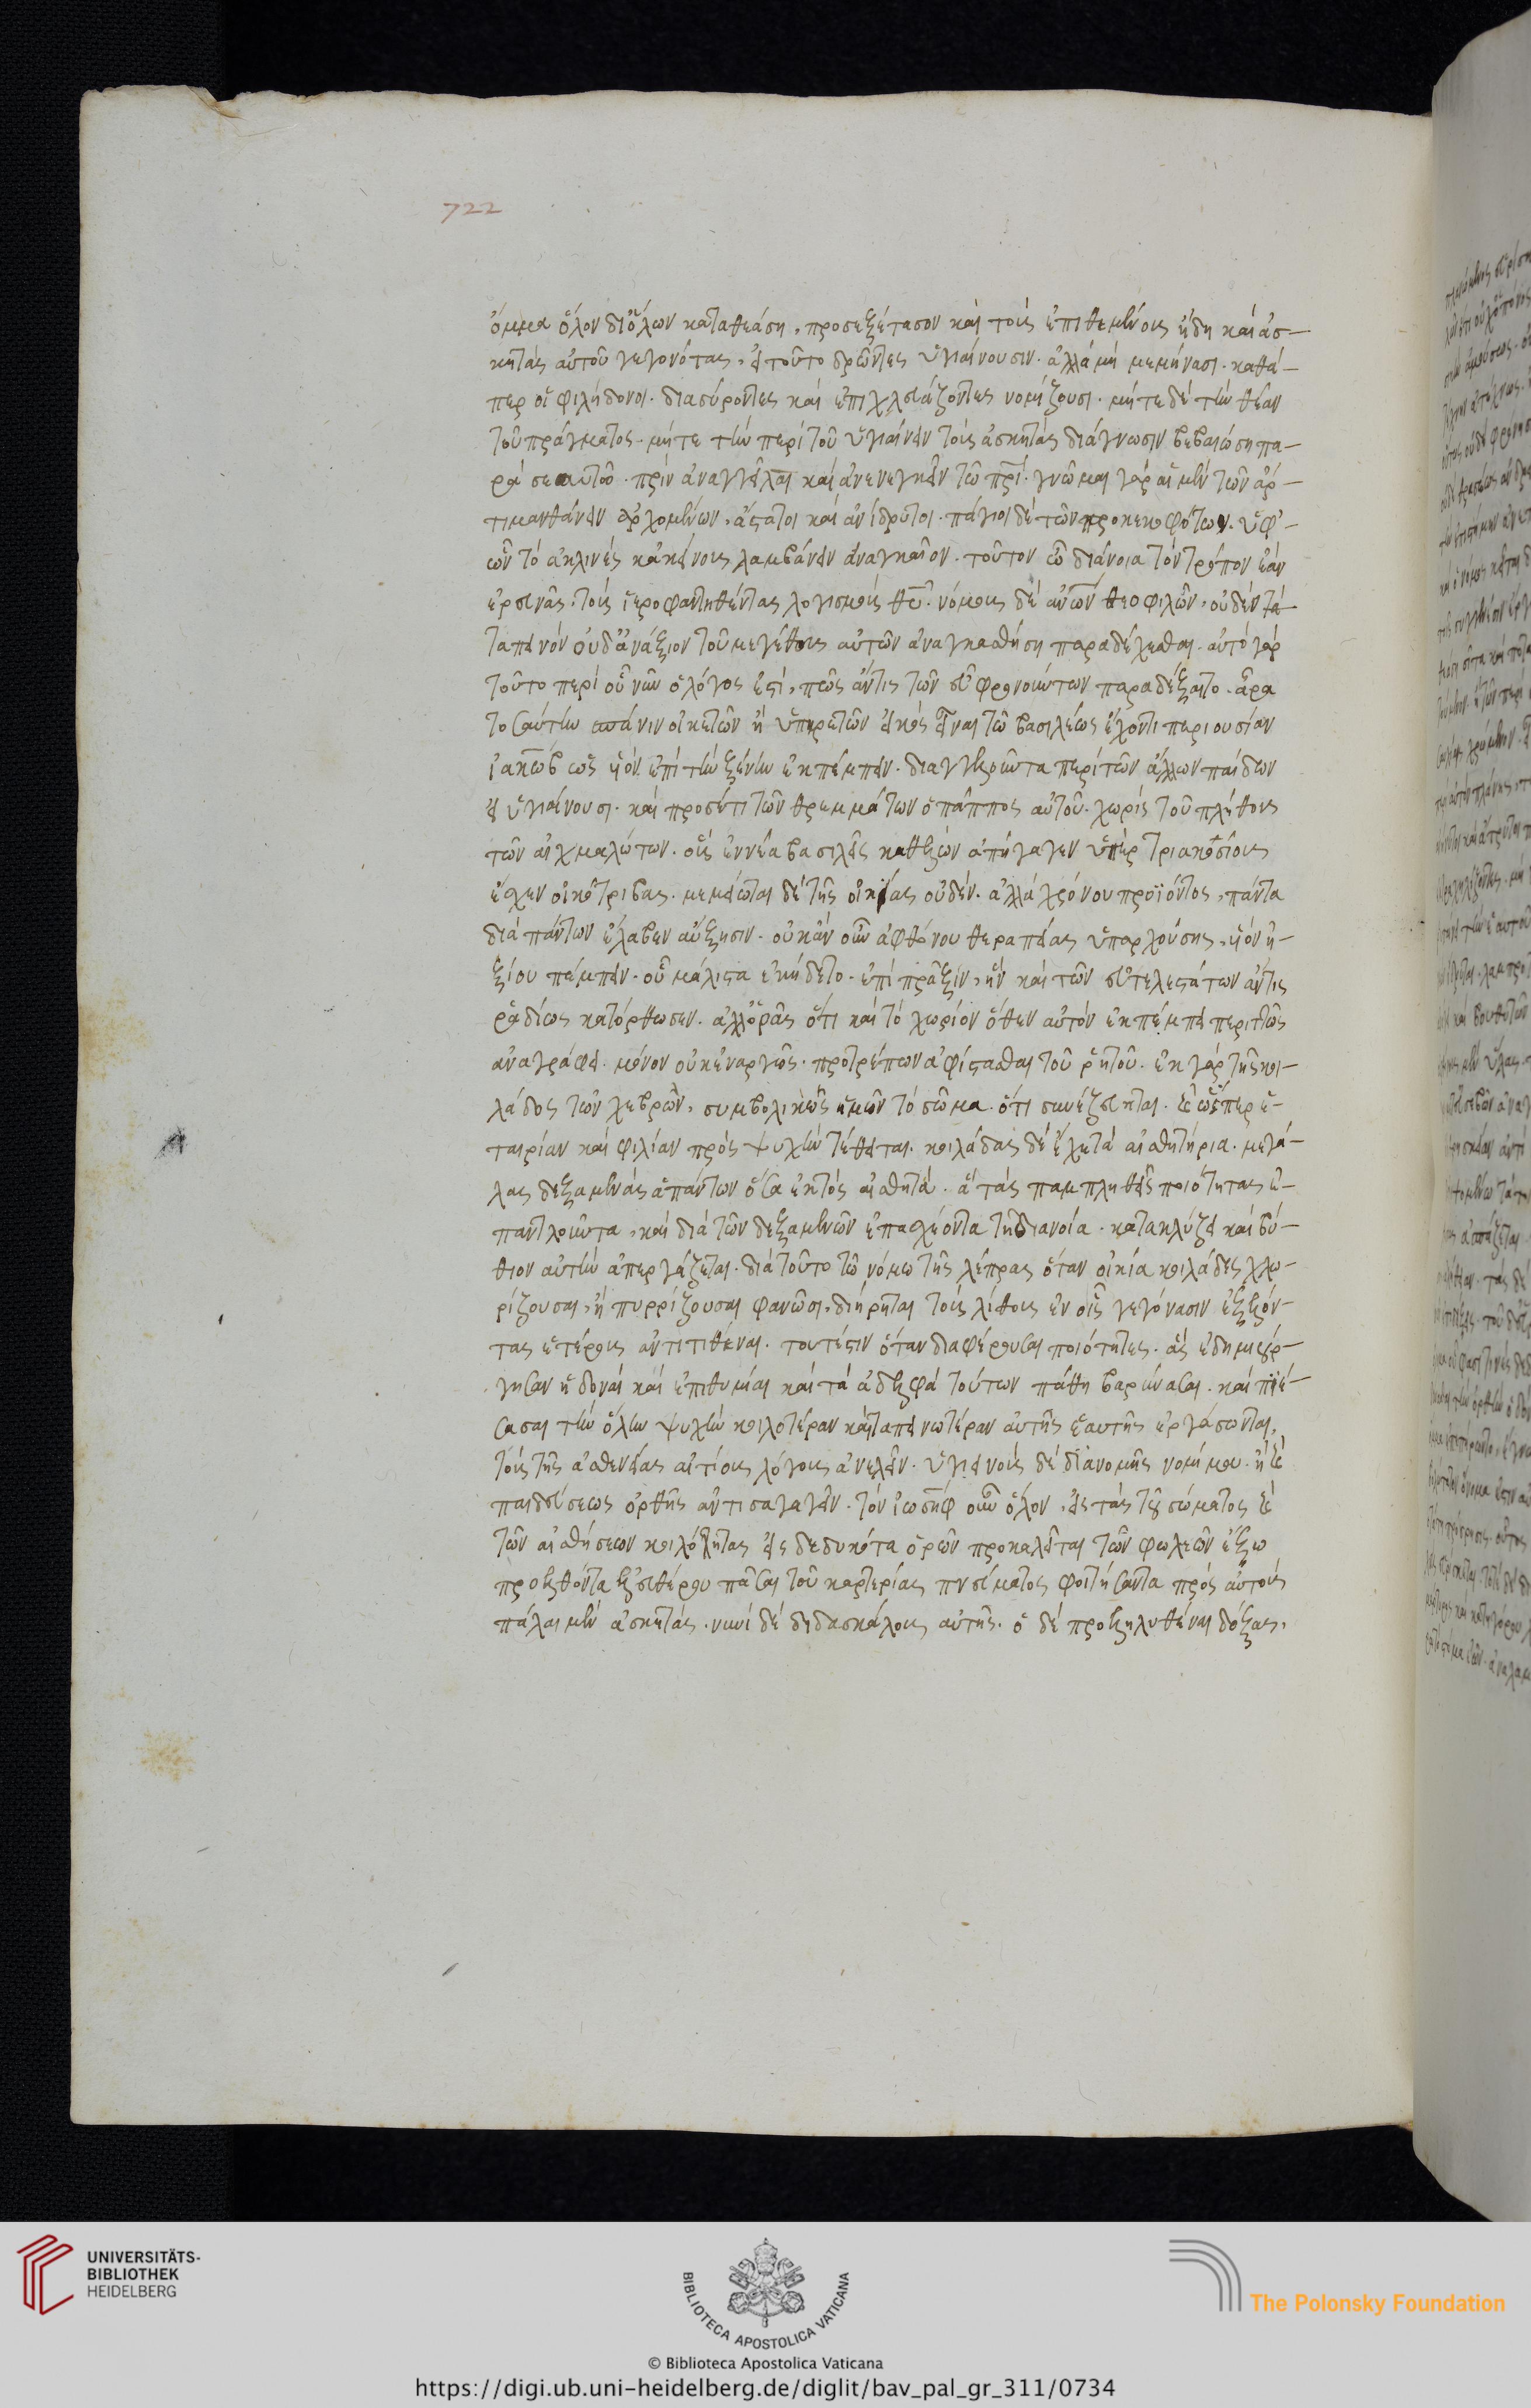 722
ὄμμα ὅλον δι' ὅλων καταθεάση, προσεξέτασον καὶ τοὺς ἐπιθεμένους ἤδη καὶ ἀσ-
κητὰς αὐτοῦ γεγονότας, εἰ τοῦτο δρῶντες ὑγιαίνουσιν. ἀλλὰ μὴ μεμήνασι. καθά-
περ οἱ φιλήδονοι. διασύροντες καὶ ἐπιχλευάζοντες νομίζουσι. μήτε δὲ τὴν θέαν
τοῦ πράγματος. μήτε τὴν περὶ τοῦ ὑγιαίνειν τοὺς ἀσκητὰς διάγνωσιν βεβαιώση πα-
ρὰ σεαυτῶ. πρὶν ἀναγγεῖλαι καὶ ἀνενεγκεῖν τῶ πρι. γνῶμαι γὰρ αἱ μὲν τῶν ἀρ-
τι μανθάνειν ἀρχομένων, ἄστατοι καὶ ἀνίδρυτοι. πάγιοι δὲ τῶν προκεκοφότων. ὑφ'
ὧν τὸ ἀκλινὲς κἀκείνους λαμβάνειν ἀναγκαῖον. τοῦτον ὦ διάνοια τὸν τρόπον ἐὰν
ἐρευνᾶς, τοὺς ἱεροφαντηθέντας λογισμοὺς θυ. νόμους δὲ ἀνων θεοφιλῶν, οὐδὲν τα-
ταπεινὸν οὐδ' ἀνάξιον τοῦ μεγέθους αὐτῶν ἀναγκασθήση παραδέχεσθαι. αὐτὸ γὰρ
τοῦτο περὶ οὗ νῦν ὁ λόγος ἐστὶ, πῶς ἄν τις τῶν εὖ φρονούντων παραδέξαιτο. ἆρα
τοσαύτην σπάνιν οἰκετῶν ἢ ὑπηρετῶν εἰκὸς εἶναι τῶ βασιλέως ἔχοντι περιουσίαν
ἰακὼβ ὡς υἱὸν ἐπὶ τὴν ξένην ἐκπέμπειν. διαγγελοῦντα περὶ τῶν ἄλλων παίδων
εἰ ὑγιαίνουσι. καὶ προσέτι τῶν θρεμμάτων ὁ πάππος αὐτοῦ. χωρὶς τοῦ πλήθους
τῶν αἰχμαλώτων. οὓς ἐννέα βασιλεῖς καθελὼν ἀπήγαγεν ὑπὲρ τριακοσίους
εἶχεν οἰκότριβας. μεμείωται δὲ τῆς οἰκίας οὐδὲν. ἀλλὰ χρόνου προϊόντος, πάντα
διὰ πάντων ἔλαβεν αὔξησιν. οὐκ ἂν οὖν ἀφθόνου θεραπείας ὑπαρχούσης, υἱὸν ἠ-
ξίου πέμπειν. οὗ μάλιστα ἐκήδετο. ἐπὶ πρᾶξιν, ἣν καὶ τῶν εὐτελεστάτων ἄν τις
ῥᾳδίως κατόρθωσεν. ἀλλ' ὁρᾷς ὅτι καὶ τὸ χωρίον ὅθεν αὐτὸν ἐκπέμπει περιττῶς
ἀναγράφει. μόνον οὐκ ἐναργῶς. προτρέπων ἀφίστασθαι τοῦ ῥητοῦ. ἐκ γὰρ τῆς κοι-
λάδος τῶν χεβρῶν, συμβολικῶς ἡμῶν τὸ σῶμα. ὅτι συνέζευκται. καὶ ὥσπερ ἑ-
ταιρίαν καὶ φιλίαν πρὸς ψυχὴν τέθειται. κοιλάδας δὲ ἔχει τὰ αἰσθητήρια. μεγά-
λας δεξαμενὰς ἁπάντων ὅσα ἐκτὸς αἰσθητά. ἃ τὰς παμπληθεῖς ποιότητας ἐ-
παντλοῦντα, καὶ διὰ τῶν δεξαμενῶν ἐπεισχέοντα τῆ διανοία. κατακλύζει καὶ βύ-
θιον αὐτὴν ἀπεργάζεται. διὰ τοῦτο τῶ νόμω τῆς λέπρας ὅταν οἰκία κοιλάδες χλω-
ρίζουσαι, ἢ πυρρίζουσαι φανῶσι, διείρηται τοὺς λίθους ἐν οἷς γεγόνασιν ἐξελόν-
τας ἑτέρους ἀντιτιθέναι. τουτέστιν ὅταν διαφέρουσαι ποιότητες. ἃς ἐδημιούρ-
γησαν ἡδοναὶ καὶ ἐπιθυμίαι καὶ τὰ ἀδελφὰ τούτων πάθη βαρύνασαι. καὶ πιέ-
σασαι τὴν ὅλην ψυχὴν κοιλοτέραν καὶ ταπεινωτέραν αὐτῆς ἑαυτῆς ἐργάσωνται,
τοὺς τῆς ἀσθενείας αἰτίους λόγους ἀνελεῖν. ὑγιεινοὺς δὲ δι' ἀνομῆς νομίμου. ἢ καὶ
παιδεύσεως ὀρθῆς ἀντεισαγαγεῖν. τὸν ἰωσὴφ οὖν ὅλον, εἰς τὰς τοῦ σώματος καὶ
τῶν αἰσθήσεων κοιλότητας εἰσδεδυκότα ὁρῶν προκαλεῖται τῶν φωλεῶν ἔξω
προελθόντα ἐλευθέρου πᾶσαι τοῦ καρτερίας πνεύματος φοιτήσαντα πρὸς αὐτοὺς
πάλαι μὲν ἀσκητὰς, νυνὶ δὲ διδασκάλους αὐτῆς. ὁ δὲ προεληλυθέναι δόξας,
UNIVERSITÄTS-
BIBLIOTHEK
HEIDELBERG
BIBLIOTECA APOSTOLICA VATICANA
The Polonsky Foundation
© Biblioteca Apostolica Vaticana
https://digi.ub.uni-heidelberg.de/diglit/bav_pal_gr_311/0734